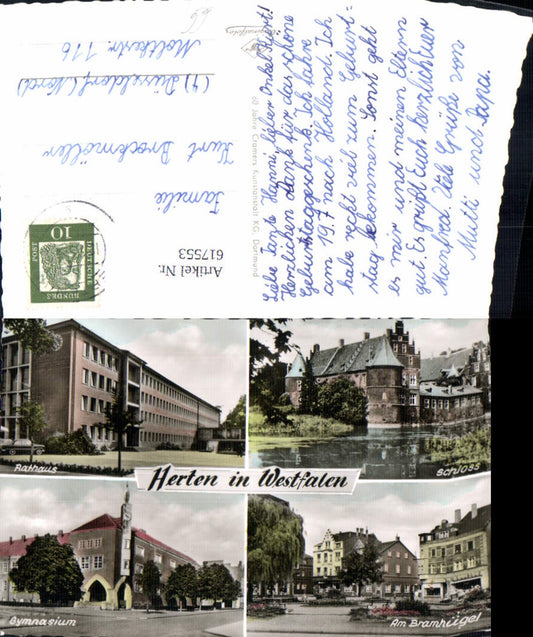 Liebe Tante Hanni, lieber Onkel Kurt!
Herzlichen Dank für das schöne
Geburtstaggeschenk. Ich fahre
am 19.7 nach Holland. Ich
habe recht viel zum Geburts-
tag bekommen. Sonst geht
es mir und meinen Eltern
gut. Es grüßt Euch herzlich Euer
Manfred. Viele Grüße von
Mutti und Papa.
60 Jahre Cramers Kunstanstalt KG., Dortmund
Familie
Kurt Brockmöller
(4) Düsseldorf (Nord)
Moltkestr. 116
10
DEUTSCHE
BUNDES
POST
Artikel Nr.
617553
Rathaus
Schloss
Herten in Westfalen
Gymnasium
Am Bramhügel